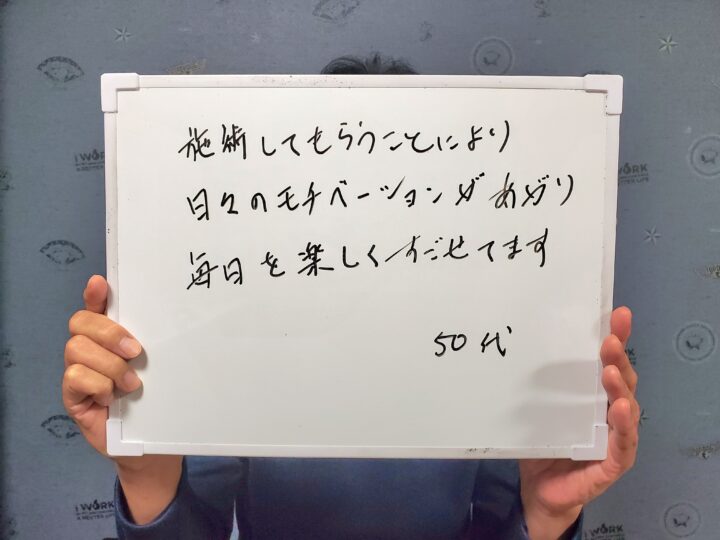 施術してもらうことにより
日々のモチベーションがあがり
毎日を楽しくすごせてます
50代
I WORK
I WORK
A BETTER LIFE
I WORK
I WORK